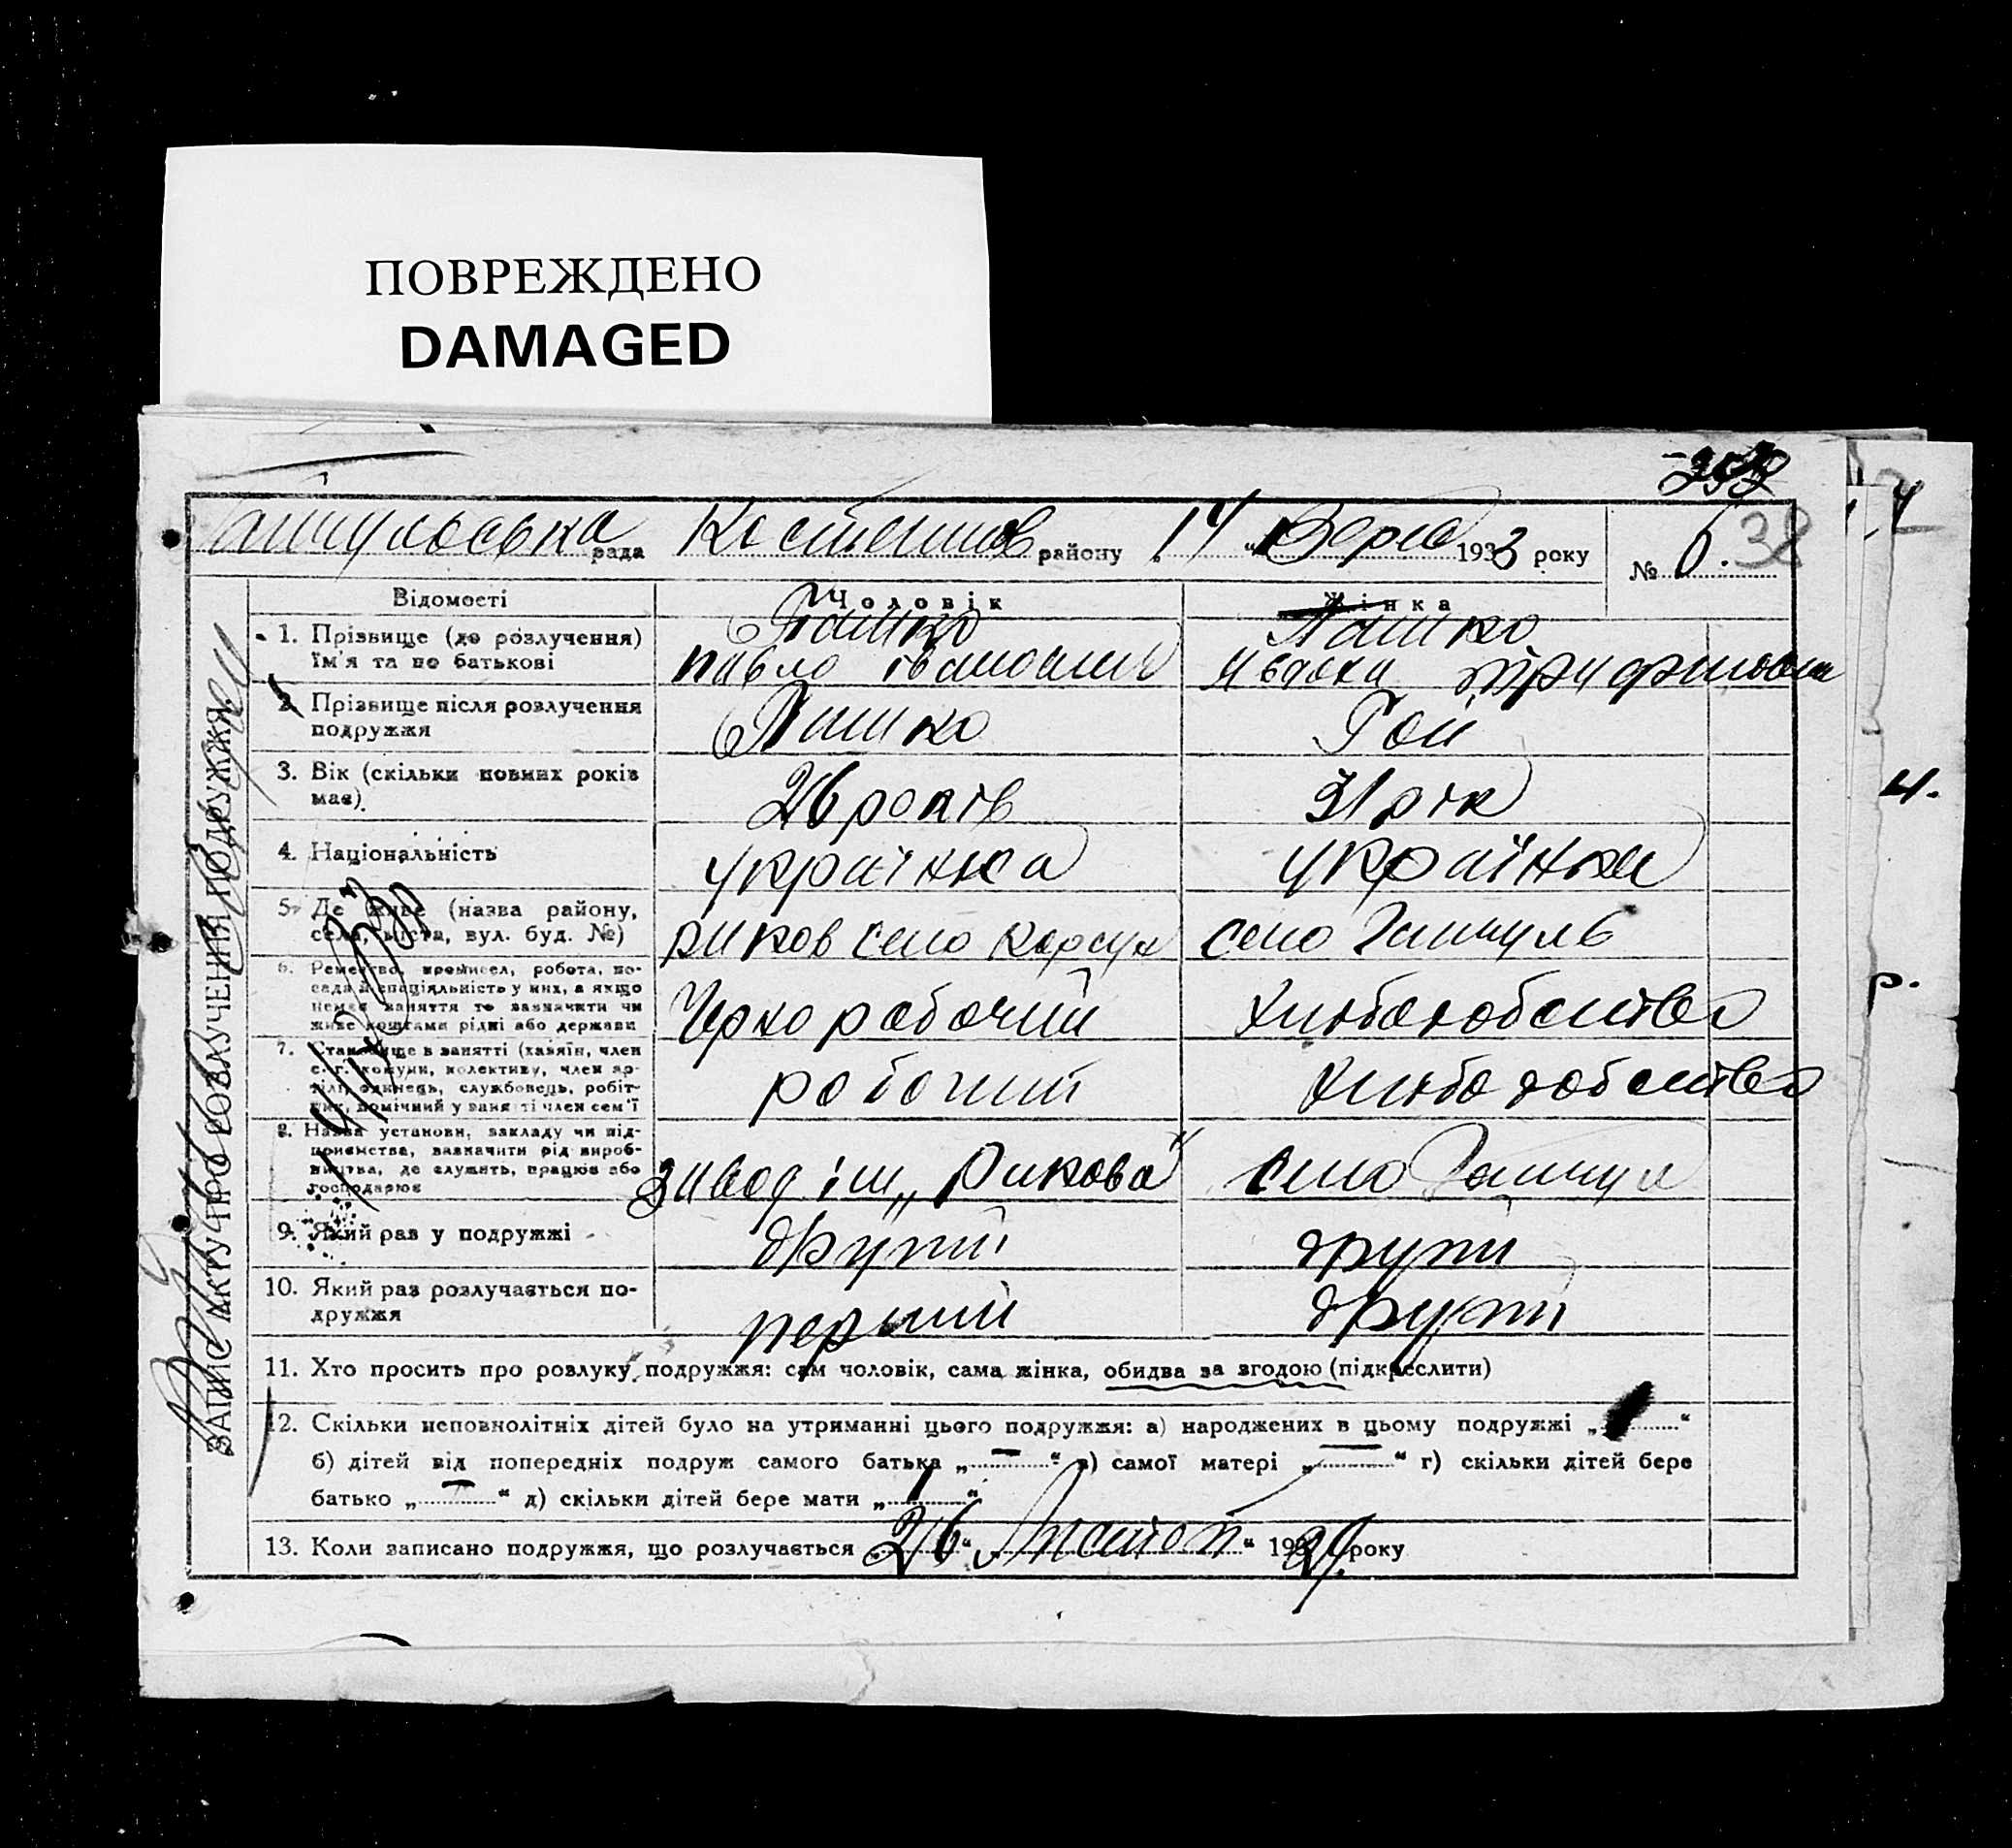 ПОВРЕЖДЕНО
DAMAGED
рада району 14 1933 року № 6. 38
ЗАПИС АКТУ ПРО РОЗЛУЧЕННЯ ПОДРУЖЖЯ
Відомості Чоловік Жінка
1. Прізвище (до розлучення) Пашко Пашко
ім'я та по батькові Павло
2. Прізвище після розлучення Пашко Гой
подружжя
3. Вік (скільки повних років 26 років 31 рік
має)
4. Національність українка українка
5. Де живе (назва району, риков село село
села, міста, вул. буд. №)
6. Ремество, промисел, робота, по-
сада й спеціяльність у них, а якщо
немає заняття то зазначити чи Чорно рабочий
живе коштами рідні або держави
7. Становище в занятті (хазяїн, член
с.-г. комуни, колективу, член ар-
тілі, одинець, службовець, робіт- робочий
ник, помічний у занятті член сем'ї
8. Назва установи, закладу чи під-
приємства, зазначити рід вироб-
ництва, де служить, працює або завод ім „Рикова“ село
господарює
9. Який раз у подружжі другий другий
10. Який раз розлучається по- перший другий
дружжя
11. Хто просить про розлуку подружжя: сам чоловік, сама жінка, обидва за згодою (підкреслити)
12. Скільки неповнолітніх дітей було на утриманні цього подружжя: а) народжених в цьому подружжі „ “
б) дітей від попередніх подруж самого батька „—“ в) самої матері „—“ г) скільки дітей бере
батько „—“ д) скільки дітей бере мати „1“
13. Коли записано подружжя, що розлучається „26“ „Листоп“ 1929 року
ч.
р.